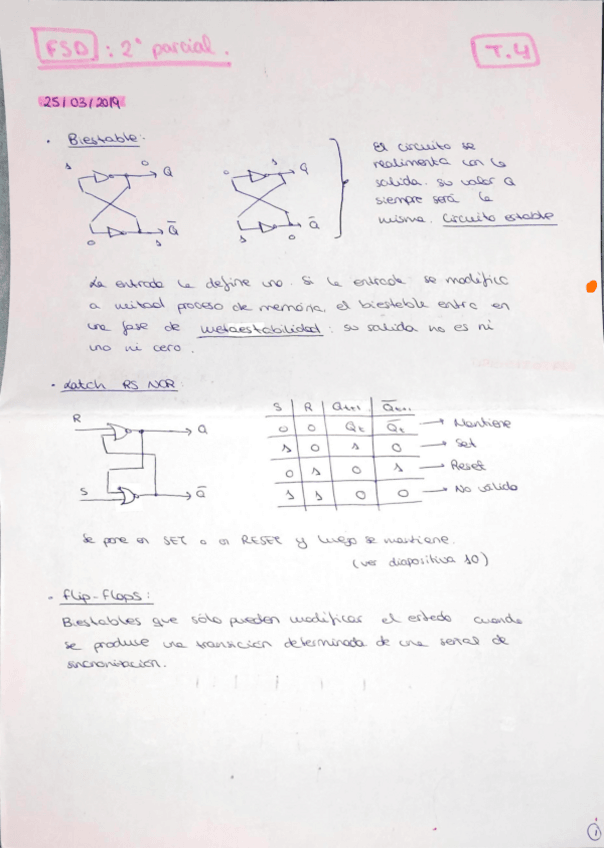 FSD : 2º parcial.
T.4
25/03/2019
· Biestable:
1 0 Q
0 1 Q̅
0 1 Q
1 0 Q̅
El circuito se
realimenta con la
salida. su valor Q
siempre será la
misma. Circuito estable
La entrada la define uno. Si la entrada se modifica
a mitad proceso de memoria, el biestable entra en
una fase de metaestabilidad: su salida no es ni
uno ni cero.
· Latch RS NOR:
R Q
S Q̅
S R Qt+1 Q̅t+1
0 0 Qt Q̅t → Mantiene
1 0 1 0 → Set
0 1 0 1 → Reset
1 1 0 0 → No válido
Se pone en SET o en RESET y luego se mantiene.
(ver diapositiva 10)
- Flip-Flops:
Biestables que sólo pueden modificar el estado cuando
se produce una transición determinada de una señal de
sincronización.
1